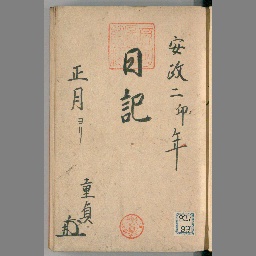 安政二卯年
日記
正月ヨリ
童貞